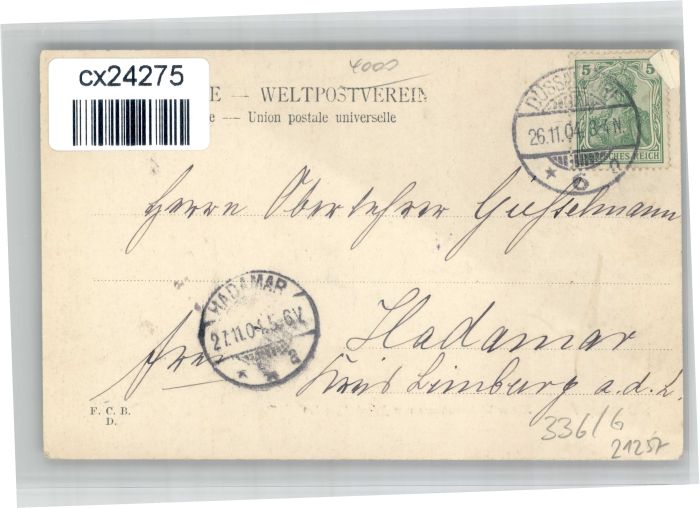 cx24275
4000
E — WELTPOSTVEREIN
e — Union postale universelle
5 5
DÜSSELDORF
26.11.04. 3-4 N.
DEUTSCHES REICH
* o
Herrn Oberlehrer
HADAMAR
27.11.04. 5-6 V.
* * a
frei
Hadamar
Kreis Limburg a. d. L.
F. C. B.
D.
336/6
21257